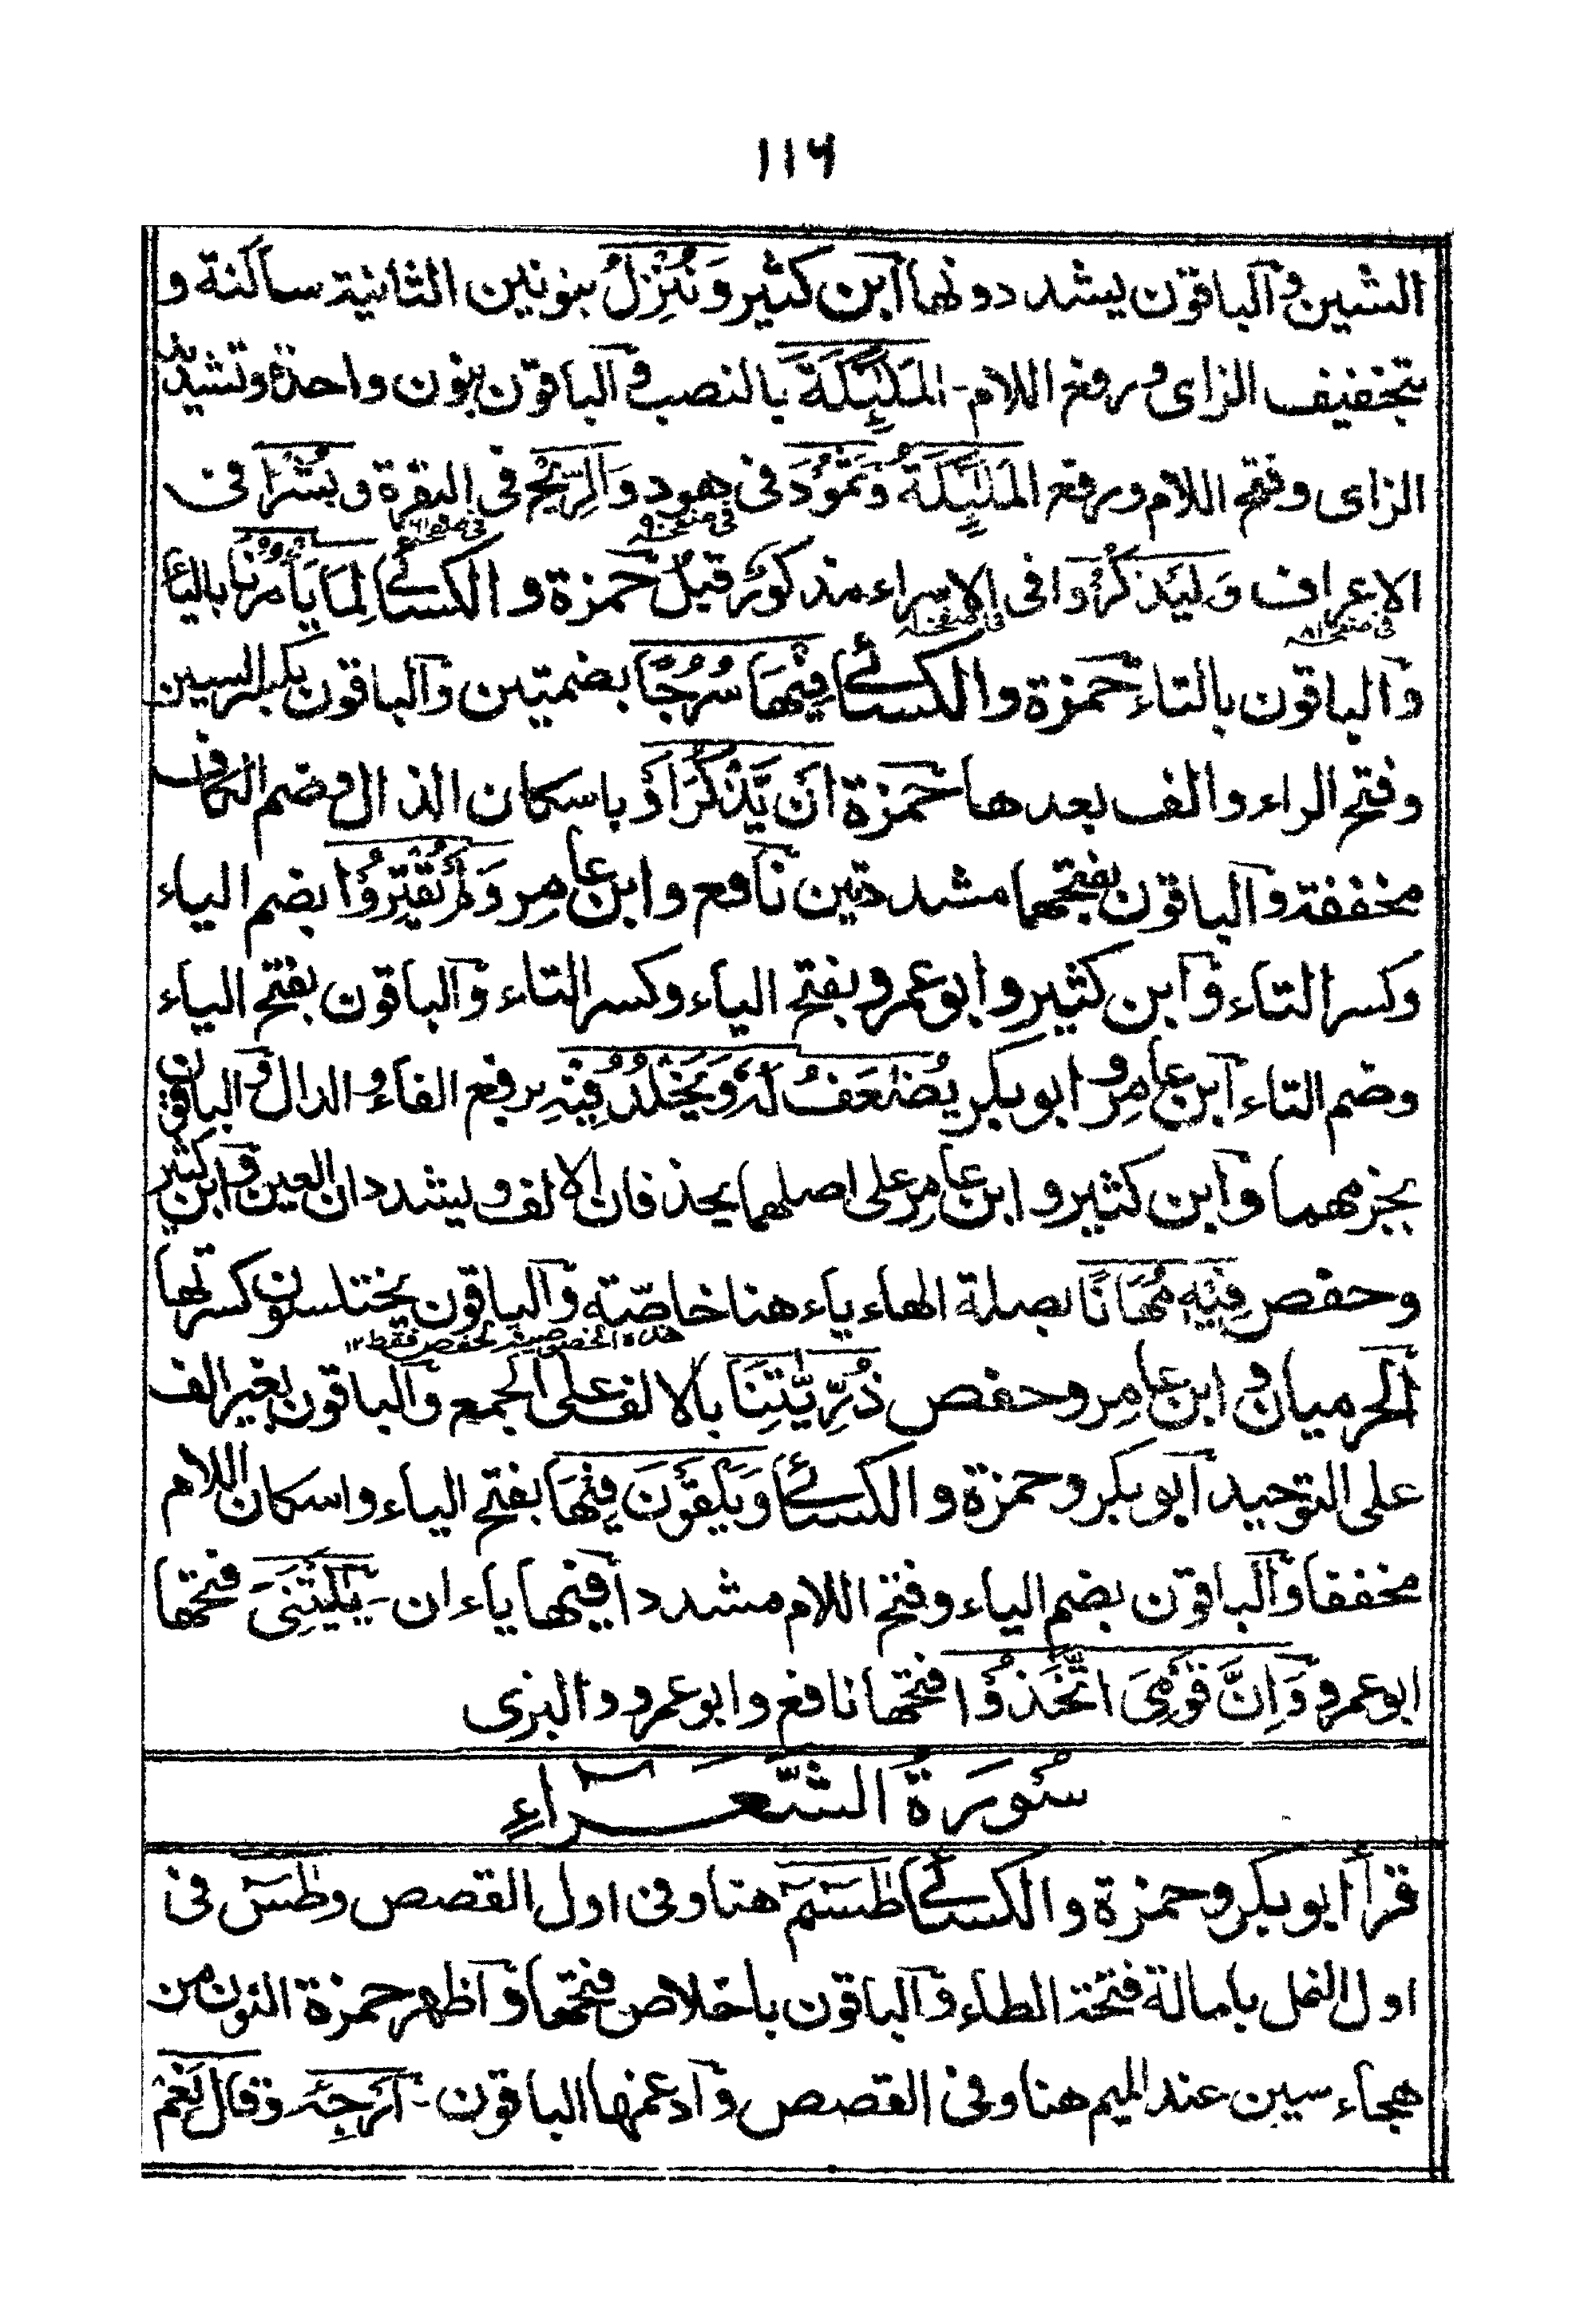 ۱۱۶
الشين والباقون يشددونها ابن كثير وَنُنْزِلُ بنونين الثانية ساكنة و
تخفيف الزاى ورفع اللام - المَلٰٓئِكَةَ بالنصب والباقون بنون واحدة وتشديد
الزاى وفتح اللام ورفع المَلٰٓئِكَةُ وَثَمُوْدَ فى هود وَالرِّيْحُ فى البقرة وبُشْرًا فى
فى صفحه ۹۰
الاعراف وَلِيَذَّكَّرُوا فى الاسراء مذكور قبلُ حمزة والكسائى لِمَا يَأْمُرُنَا بالياء
فى صفحه ۸۱
والباقون بالتاء حمزة والكسائى فِيْهَا سُرُجًا بضمتين والباقون بكسر السين
وفتح الراء والف بعدها حمزة اَنْ يَّذْكُرَ اَوْ باسكان الذال وضم الكاف
مخففة والباقون بفتحهما مشددتين نافع وابن عامر وَلَمْ يُقْتِرُوْا بضم الياء
وكسر التاء وابن كثير وابو عمرو بفتح الياء وكسر التاء والباقون بفتح الياء
وضم التاء ابن عامر وابو بكر يُضٰعَفُ لَهٗ وَيَخْلُدُ فِيْهِ برفع الفاء والدال والباقون
بجزمهما وابن كثير وابن عامر على اصلهما يحذفان الالف ويشددان العين وابن كثير
وحفص فِيْهٖ مُهَانًا بصلة الهاء ياء هنا خاصّة والباقون يختلسون كسرتها
هذه الخصوصية لحفص فقط ۱۲
الحرميان وابن عامر وحفص ذُرِّيّٰتِنَا بالالف على الجمع والباقون بغير الف
على التوحيد ابو بكر وحمزة والكسائى وَيَلْقَوْنَ فِيْهَا بفتح الياء واسكان اللام
مخففا والباقون بضم الياء وفتح اللام مشددا فيها ياءان - يٰلَيْتَنِىَ فتحها
ابو عمرو وَاِنَّ قَوْمِىَ اتَّخَذُوْا فتحها نافع وابو عمرو والبزى
سُوْرَةُ الشُّعَرَآءِ
قرأ ابو بكر وحمزة والكسائى طٰسٓمٓ هنا وفى اول القصص وطٰسٓ فى
اول النمل بامالة فتحة الطاء والباقون باخلاص فتحها واظهر حمزة النون من
هجاء سين عند الميم هنا وفى القصص وادغمها الباقون - اَرْجِهْ وقال نَعَمْ